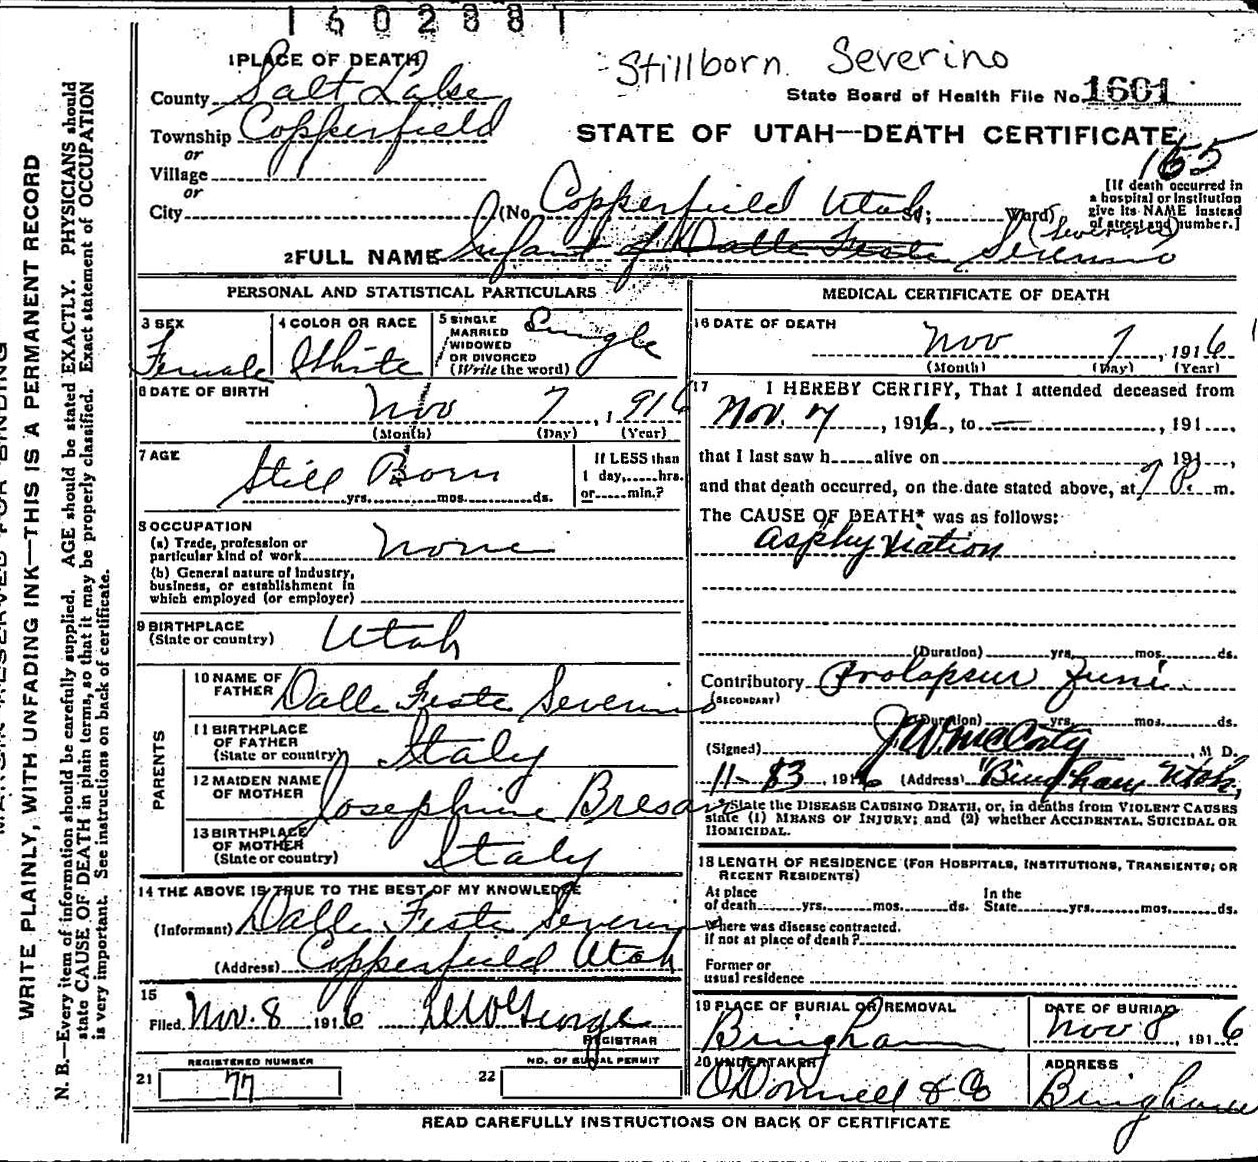 1602881
Stillborn Severino
1 PLACE OF DEATH
County Salt Lake
State Board of Health File No. 1601
Township Copperfield
STATE OF UTAH—DEATH CERTIFICATE
or
155
Village
or
City
(No. Copperfield Utah St; Ward)
[If death occurred in
a hospital or institution
give its NAME instead
of street and number.]
(Severino)
2 FULL NAME Infant of Dalle Feste Severino
PERSONAL AND STATISTICAL PARTICULARS
3 SEX
Female
4 COLOR OR RACE
White
5 SINGLE
MARRIED
WIDOWED
OR DIVORCED
(Write the word)
Single
6 DATE OF BIRTH
Nov 7, 1916
(Month) (Day) (Year)
7 AGE
Still Born
yrs. mos. ds.
If LESS than
1 day, hrs.
or min.?
8 OCCUPATION
(a) Trade, profession or
particular kind of work None
(b) General nature of Industry,
business, or establishment in
which employed (or employer)
9 BIRTHPLACE
(State or country) Utah
PARENTS
10 NAME OF
FATHER Dalle Feste Severino
11 BIRTHPLACE
OF FATHER
(State or country) Italy
12 MAIDEN NAME
OF MOTHER Josephine Bresan
13 BIRTHPLACE
OF MOTHER
(State or country) Italy
14 THE ABOVE IS TRUE TO THE BEST OF MY KNOWLEDGE
(Informant) Dalle Feste Severino
(Address) Copperfield Utah
15
Filed Nov. 8 1916
REGISTRAR
REGISTERED NUMBER
21 77
NO. OF BURIAL PERMIT
22
MEDICAL CERTIFICATE OF DEATH
16 DATE OF DEATH
Nov 7, 1916
(Month) (Day) (Year)
17 I HEREBY CERTIFY, That I attended deceased from
Nov. 7, 1916, to — , 191
that I last saw h alive on 191
and that death occurred, on the date stated above, at 7 P. m.
The CAUSE OF DEATH* was as follows:
Asphyxiation
(Duration) yrs. mos. ds.
Contributory Prolapsur Funi
(SECONDARY)
(Duration) yrs. mos. ds.
(Signed) J W McCarty, M D.
11- 83 1916 (Address) Bingham Utah,
*State the DISEASE CAUSING DEATH, or, in deaths from VIOLENT CAUSES
state (1) MEANS OF INJURY; and (2) whether ACCIDENTAL, SUICIDAL OR
HOMICIDAL.
18 LENGTH OF RESIDENCE (FOR HOSPITALS, INSTITUTIONS, TRANSIENTS, OR
RECENT RESIDENTS)
At place
of death yrs. mos. ds.
In the
State yrs. mos. ds.
Where was disease contracted.
If not at place of death?
Former or
usual residence
19 PLACE OF BURIAL OR REMOVAL
Bingham
DATE OF BURIAL
Nov 8, 1916
20 UNDERTAKER
O'Donnell & Co
ADDRESS
Bingham
READ CAREFULLY INSTRUCTIONS ON BACK OF CERTIFICATE
MARGIN RESERVED FOR BINDING
WRITE PLAINLY, WITH UNFADING INK—THIS IS A PERMANENT RECORD
N. B.—Every item of information should be carefully supplied. AGE should be stated EXACTLY. PHYSICIANS should
state CAUSE OF DEATH in plain terms, so that it may be properly classified. Exact statement of OCCUPATION
is very important. See instructions on back of certificate.